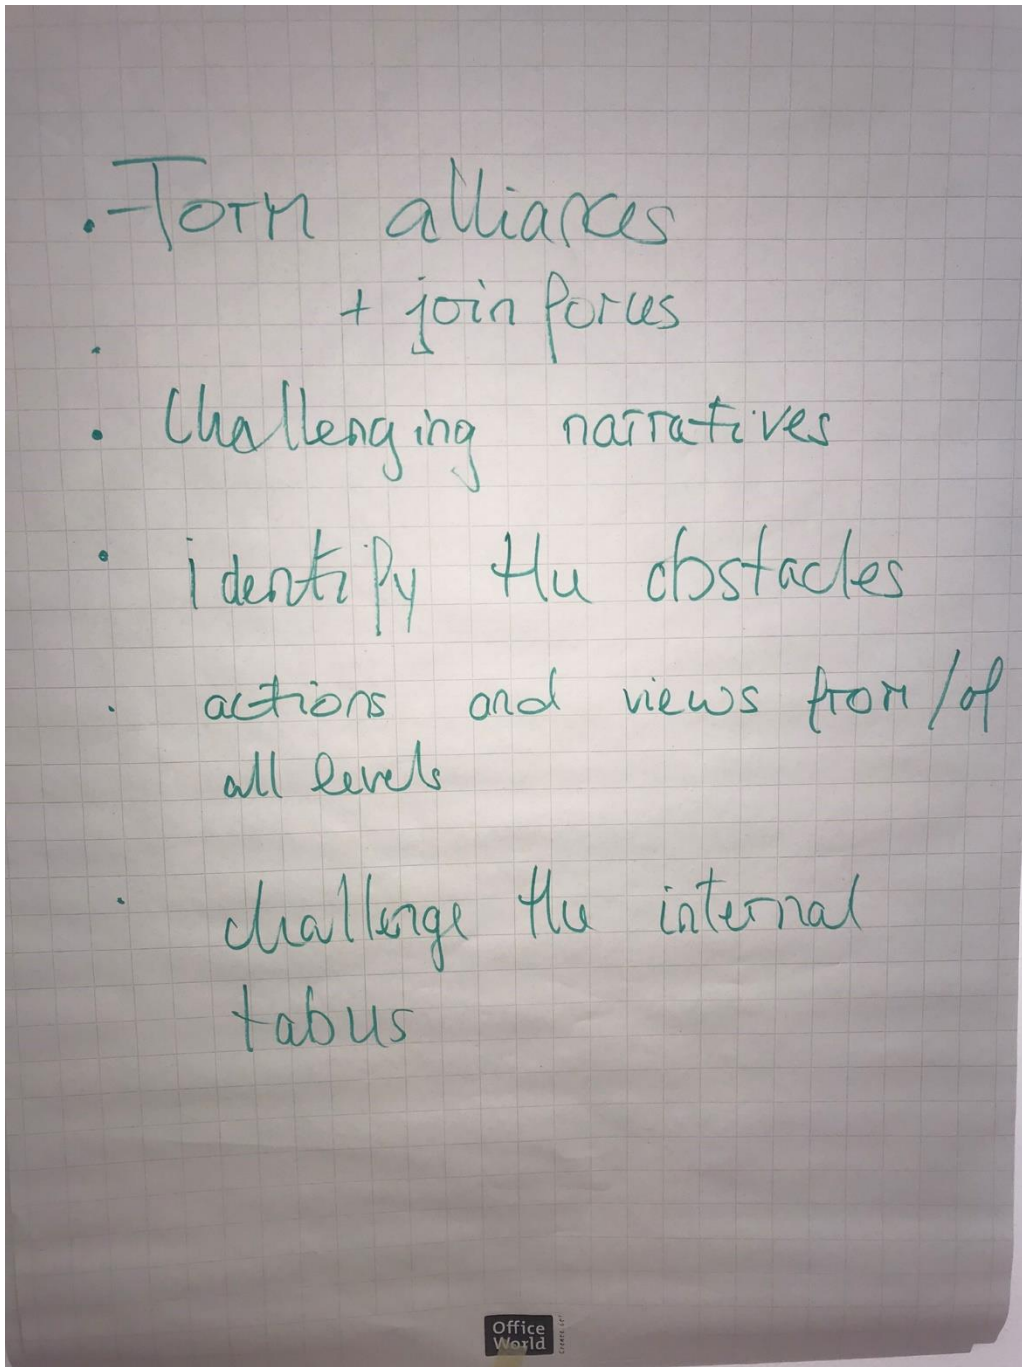 · Form alliances
+ join forces
·
· Challenging narratives
· identify the obstacles
· actions and views from/of
all levels
· challenge the internal
tabus
Office
World